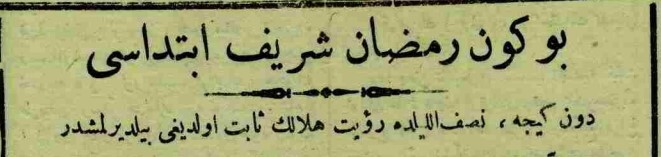 بو كون رمضان شريف ابتداسى
دون كيجه ، نصف الليلده رؤيت هلالك ثابت اولديغى بيلديرلمشدر